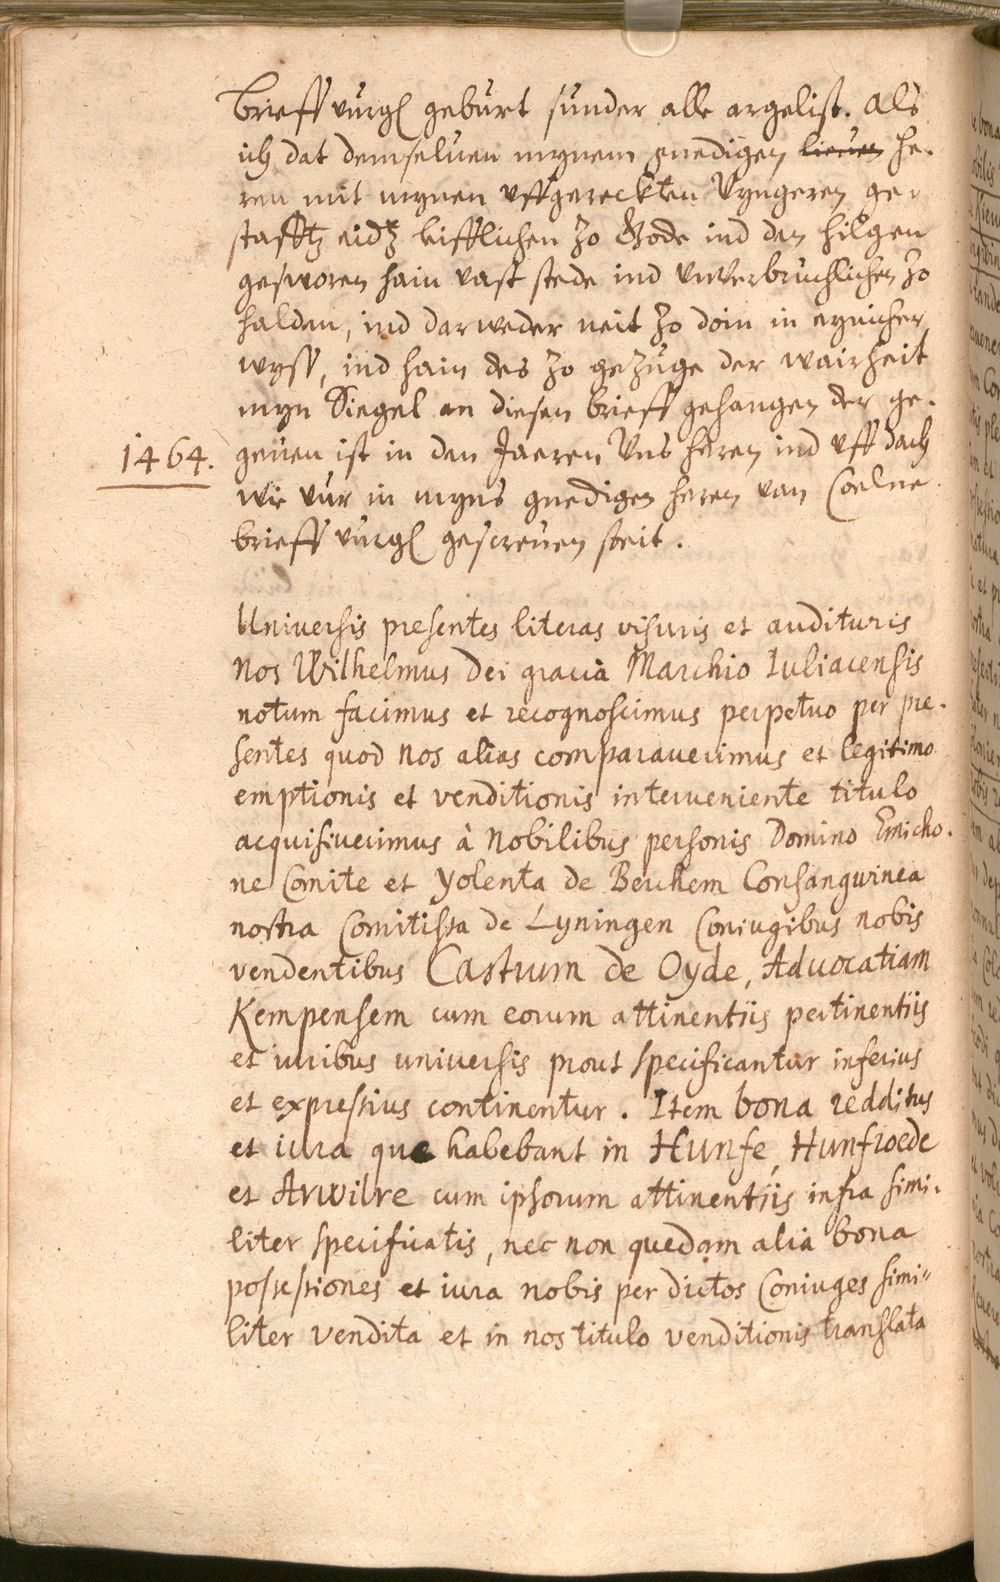 brieff vurg geburt sunder alle argelist. Als
ich dat demseluen mynem gnedigen lieuen he-
ren mit mynen uffgereckten Vyngeren ge-
stafftz eidtz lifflichen zo Gode ind den hilgen
gesworen hain vast stede ind vnverbruchlichen zo
halden, ind darweder neit zo doin in eynicher
wyss, ind hain des zo gezuge der wairheit
myn Siegel an diesen brieff gehangen der ge-
1464. geuen ist in den Jaeren Uns heren ind uff dach
wie vur in myns gnedigen heren van Coelne
brieff vurg gescreuen steit.
Universis presentes literas visuris et audituris
Nos Wilhelmus Dei gracia Marchio Iuliacensis
notum facimus et recognoscimus perpetuo per pre-
sentes quod nos alias comparauerimus et legitimo
emptionis et venditionis interueniente titulo
acquisiverimus à Nobilibus personis Domino Emicho-
ne Comite et Yolenta de Berchem Consanguinea
nostra Comitissa de Lyningen Coniugibus nobis
vendentibus Castrum de Oyde, Advocatiam
Kempensem cum eorum attinentiis pertinentiis
et iuribus universis prout specificantur inferius
et expressius continentur. Item bona redditus
et iura que habebant in Hunfe, Hunfroede
et Arwilre cum ipsorum attinentiis infra simi-
liter specificatis, nec non quedam alia bona
possessiones et iura nobis per dictos Coniuges simi-
liter vendita et in nos titulo venditionis translata